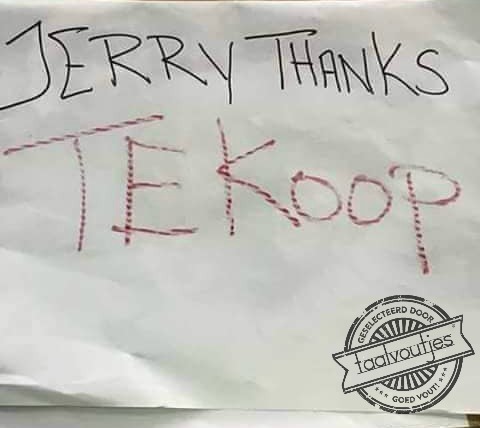 JERRY THANKS
TE KOOP
GESELECTEERD DOOR
taalvoutjes
GOED VOUT!